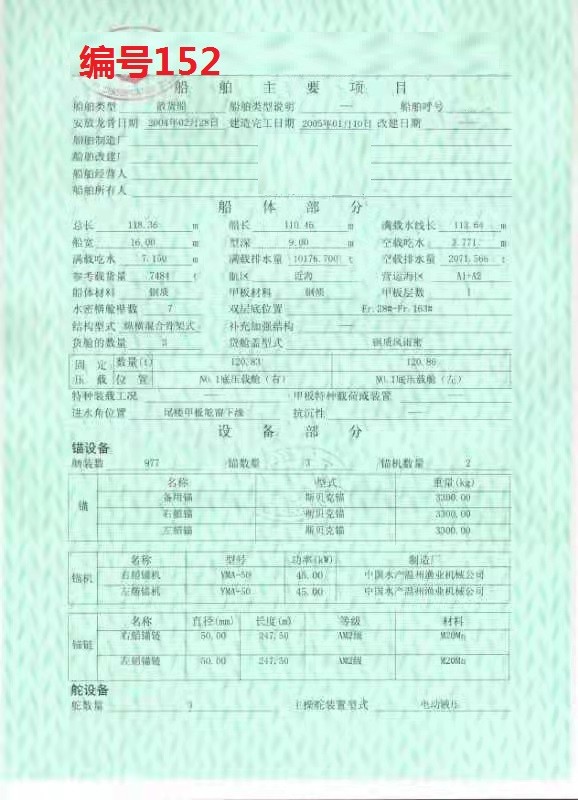 编号152
船 舶 主 要 项 目
船舶类型 散货船 船舶类型说明 — 船舶呼号
安放龙骨日期 2004年02月28日 建造完工日期 2005年01月10日 改建日期 —
船舶制造厂
船舶改建厂
船舶经营人
船舶所有人
船 体 部 分
总长 118.36 m 船长 110.46 m 满载水线长 113.64 m
船宽 16.00 m 型深 9.00 m 空载吃水 3.771 m
满载吃水 7.150 m 满载排水量 10176.700 t 空载排水量 2071.566 t
参考载货量 7484 t 航区 近海 营运海区 A1-A2
船体材料 钢质 甲板材料 钢质 甲板层数 1
水密横舱壁数 7 双层底位置 Fr.28#-Fr.163#
结构型式 纵横混合骨架式 补充加强结构 —
货舱的数量 3 货舱盖型式 钢质风雨密
固定压载 数量(t) 120.83 120.86
位置 NO.1底压载舱（右） NO.1底压载舱（左）
特种装载工况 — 甲板特种载荷或装置 —
进水角位置 尾楼甲板舱窗下缘 抗沉性 —
设 备 部 分
锚设备
舾装数 977 锚数量 3 锚机数量 2
锚 名称 型式 重量(kg)
备用锚 斯贝克锚 3300.00
右艏锚 斯贝克锚 3300.00
左艏锚 斯贝克锚 3300.00
锚机 名称 型号 功率(kW) 制造厂
右艏锚机 YMA-50 45.00 中国水产温州渔业机械公司
左艏锚机 YMA-50 45.00 中国水产温州渔业机械公司
锚链 名称 直径(mm) 长度(m) 等级 材料
右艏锚链 50.00 247.50 AM2级 M20Mn
左艏锚链 50.00 247.50 AM2级 M20Mn
舵设备
舵数量 主操舵装置型式 电动液压